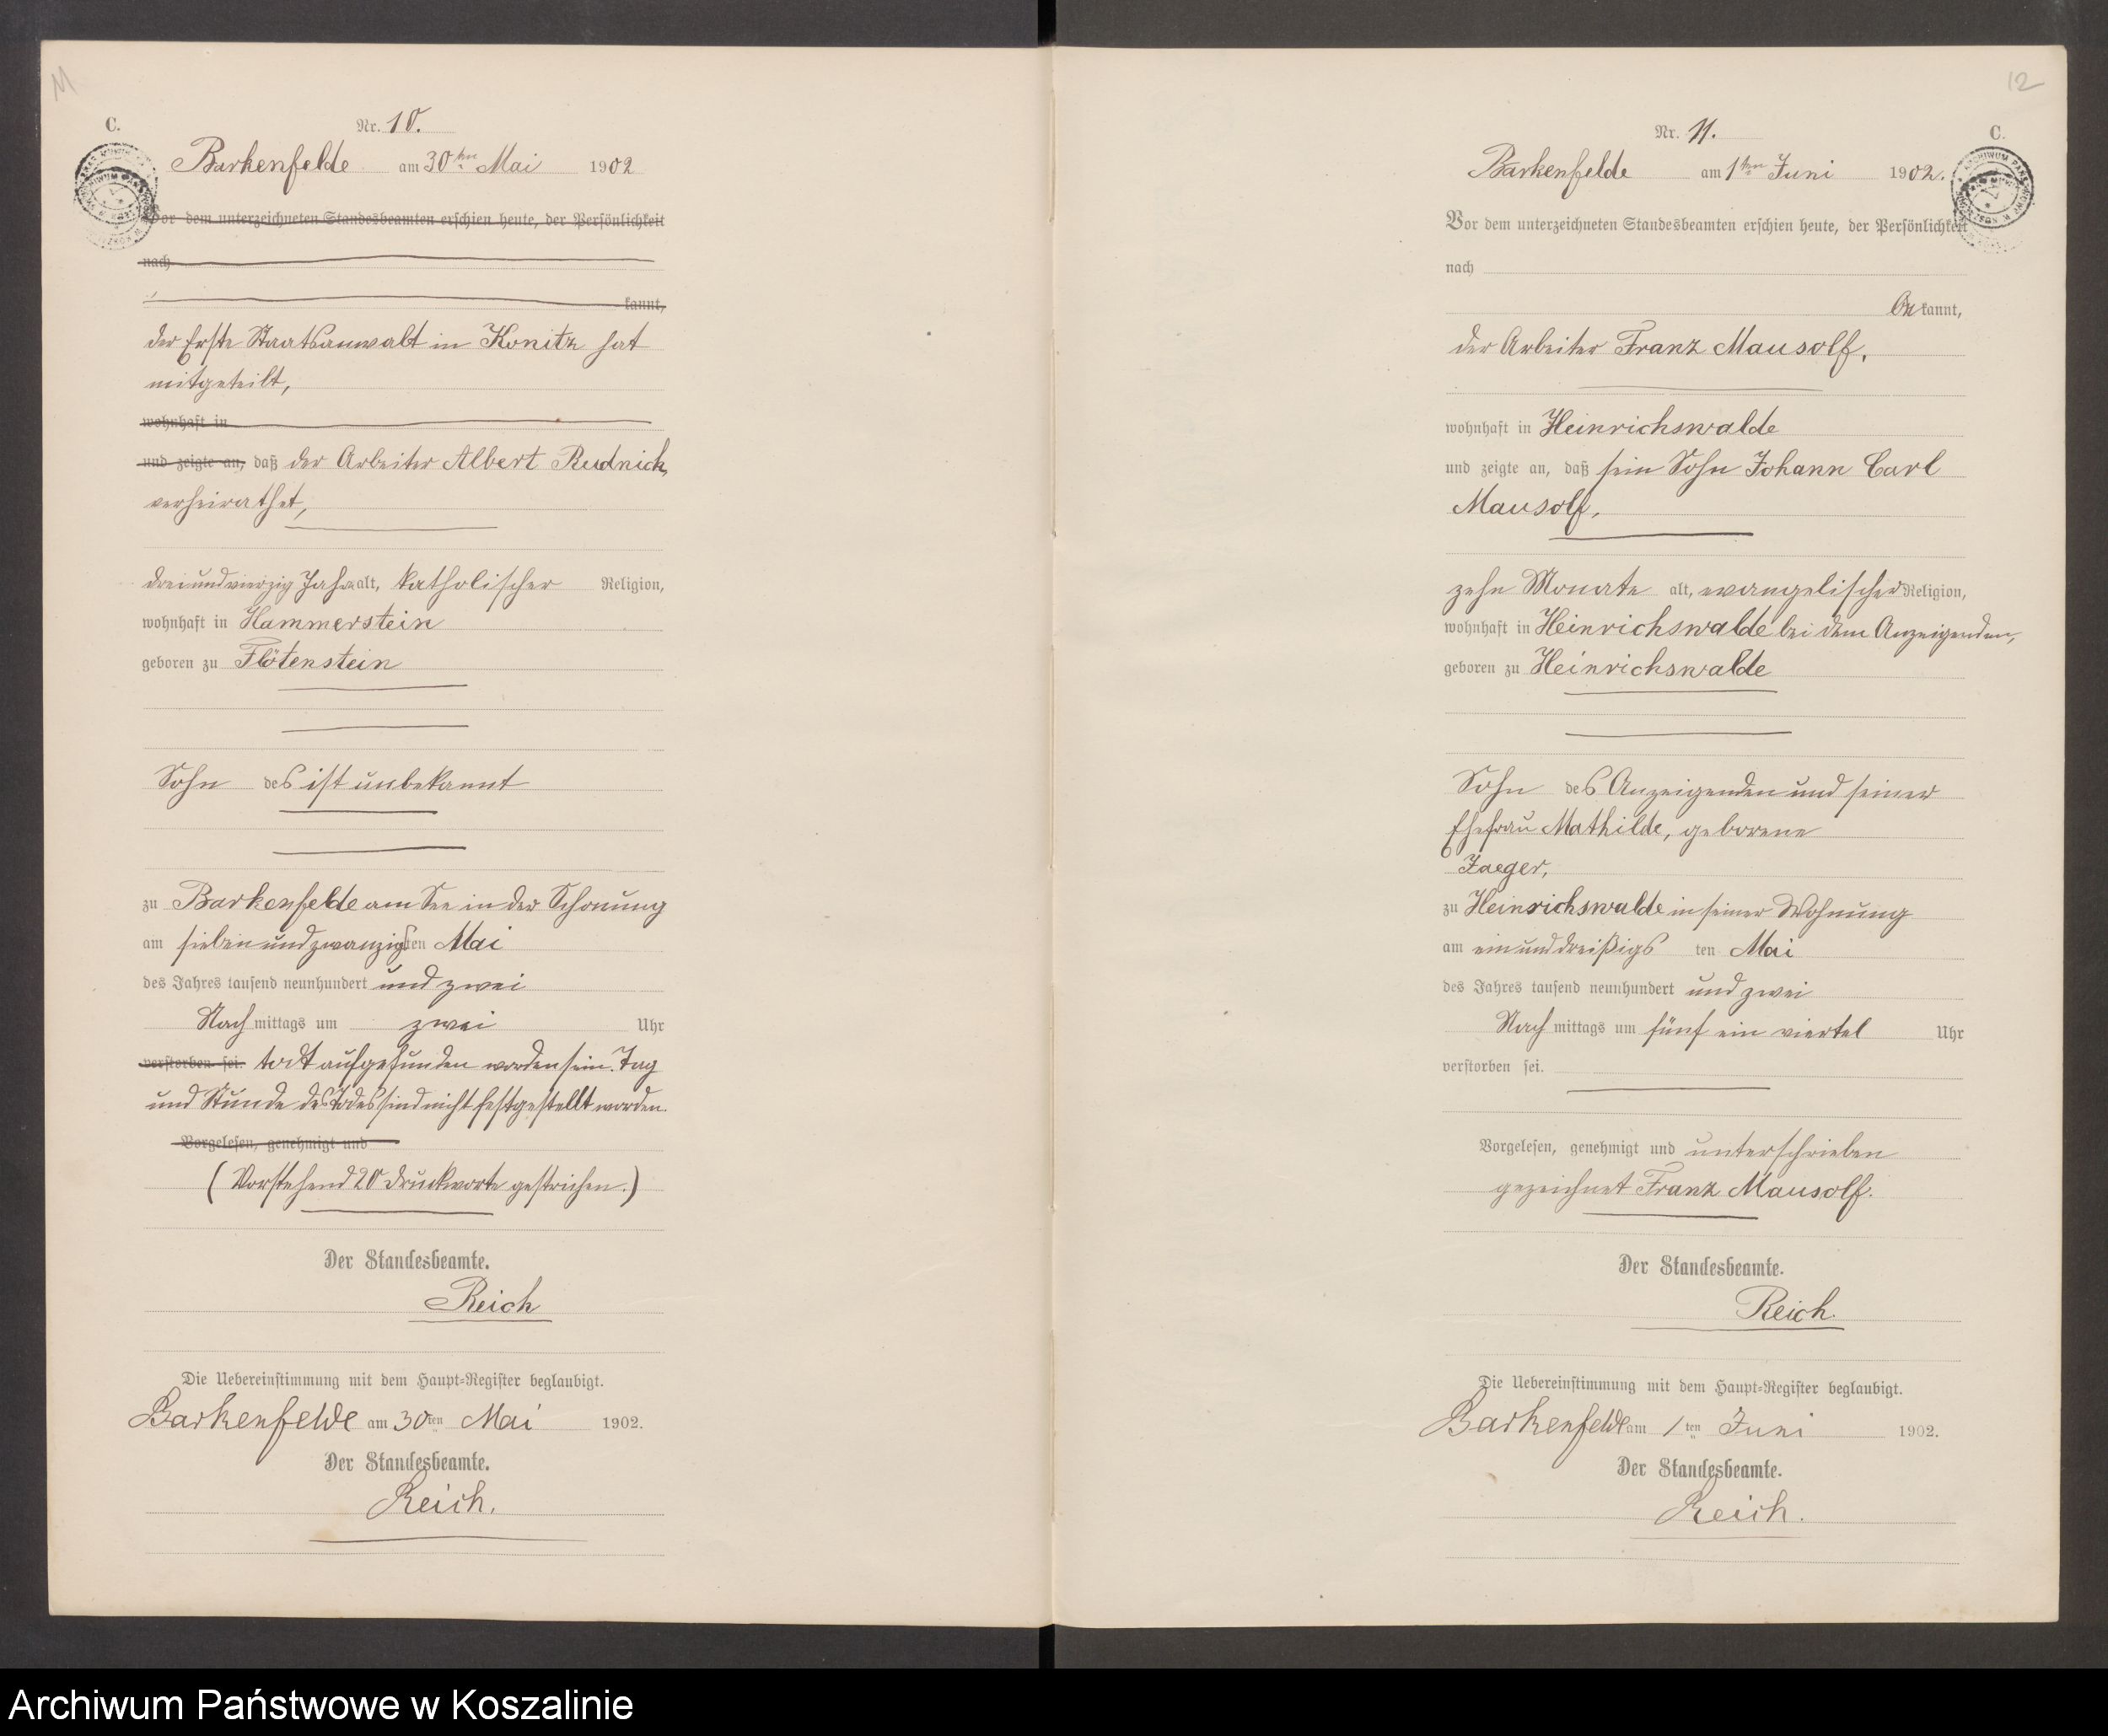 C.
Nr. 10.
Barkenfelde am 30ten Mai 1902
Vor dem unterzeichneten Standesbeamten erschien heute, der Persönlichkeit
nach
kannt,
der Erste Staatsanwalt in Konitz hat
mitgeteilt,
wohnhaft in
und zeigte an, daß der Arbeiter Albert Rudnick,
verheirathet,
dreiundvierzig Jahre alt, katholischer Religion,
wohnhaft in Hammerstein
geboren zu Flötenstein
Sohn des ist unbekannt
zu Barkenfelde am See in der Schonung
am siebenundzwanzigsten Mai
des Jahres tausend neunhundert und zwei
Nach mittags um zwei Uhr
verstorben sei. todt aufgefunden worden sein. Tag
und Stunde des Todes sind nicht festgestellt worden.
Vorgelesen, genehmigt und
(Vorstehend 20 Druckworte gestrichen.)
Der Standesbeamte.
Reich
Die Uebereinstimmung mit dem Haupt-Register beglaubigt.
Barkenfelde am 30ten Mai 1902.
Der Standesbeamte.
Reich.
12
Nr. 11.
C.
Barkenfelde am 1ten Juni 1902.
Vor dem unterzeichneten Standesbeamten erschien heute, der Persönlichkeit
nach
bekannt,
der Arbeiter Franz Mausolf,
wohnhaft in Heinrichswalde
und zeigte an, daß sein Sohn Johann Carl
Mausolf,
zehn Monate alt, evangelischer Religion,
wohnhaft in Heinrichswalde bei dem Anzeigenden,
geboren zu Heinrichswalde
Sohn des Anzeigenden und seiner
Ehefrau Mathilde, geborene
Jaeger,
zu Heinrichswalde in seiner Wohnung
am einunddreißigs ten Mai
des Jahres tausend neunhundert und zwei
Nach mittags um fünf ein viertel Uhr
verstorben sei.
Vorgelesen, genehmigt und unterschrieben
gezeichnet Franz Mausolf.
Der Standesbeamte.
Reich.
Die Uebereinstimmung mit dem Haupt-Register beglaubigt.
Barkenfelde am 1ten Juni 1902.
Der Standesbeamte.
Reich.
Archiwum Państwowe w Koszalinie